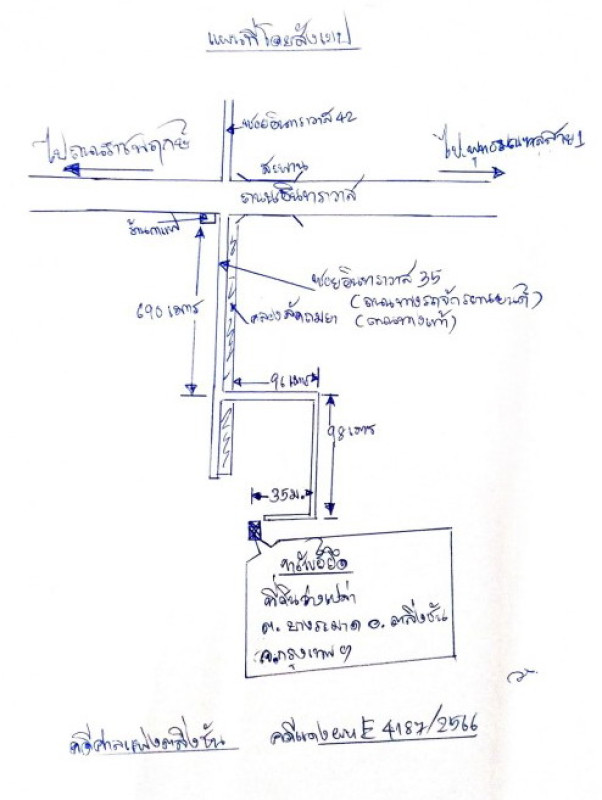 แผนที่โดยสังเขป
ซอยอินทราวาส 42
ไปถนนราชพฤกษ์
ไปพุทธมณฑลสาย 1
สะพาน
ถนนอินทราวาส
ร้านกาแฟ
ซอยอินทราวาส 35
(ถนนทางรถจักรยานยนต์)
(ถนนทางเท้า)
คลองลัดตามยา
690 เมตร
96 เมตร
98 เมตร
35 ม.
ทรัพย์ที่ยึด
ที่ดินว่างเปล่า
ต. บางระมาด อ. ตลิ่งชัน
จ.กรุงเทพฯ
คดีศาลแพ่งตลิ่งชัน คดีแดง ผบ.E 4187/2566